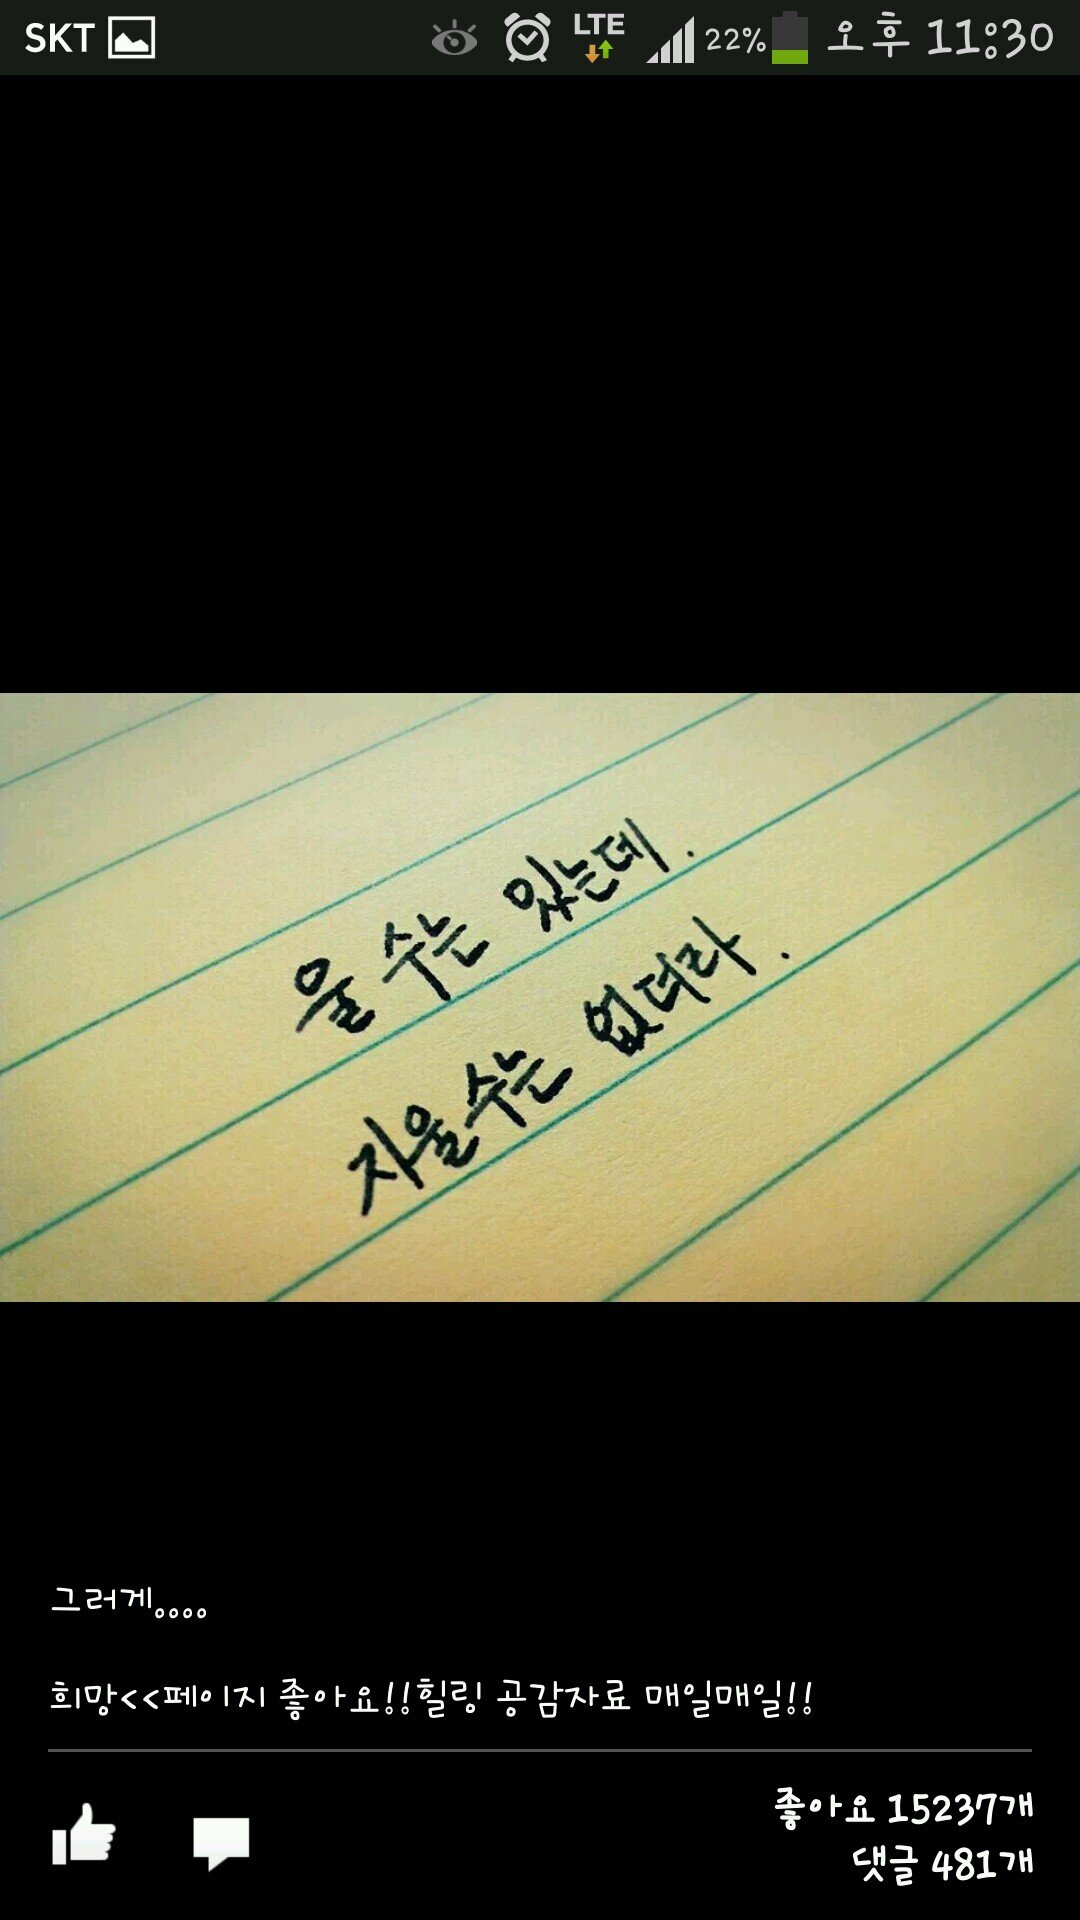 SKT LTE 22% 오후 11:30
울 수는 있는데.
지울수는 없더라.
그러게....
희망<<페이지 좋아요!!힐링 공감자료 매일매일!!
좋아요 15237개
댓글 481개